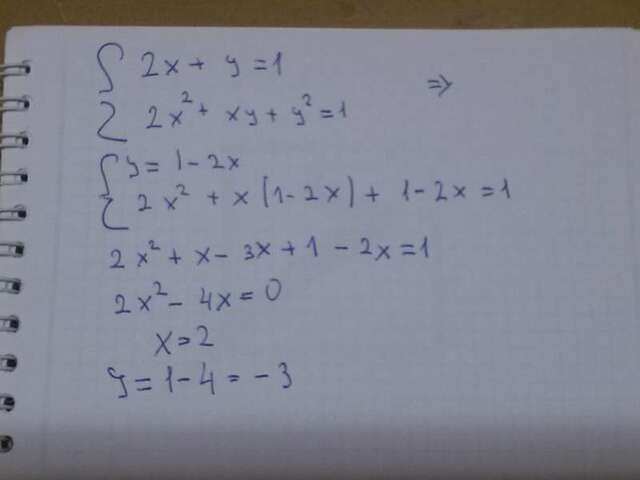 { 2x + y = 1
{ 2x² + xy + y² = 1 ⇒
{ y = 1 - 2x
{ 2x² + x(1-2x) + 1-2x = 1
2x² + x - 3x + 1 - 2x = 1
2x² - 4x = 0
x = 2
y = 1-4 = -3